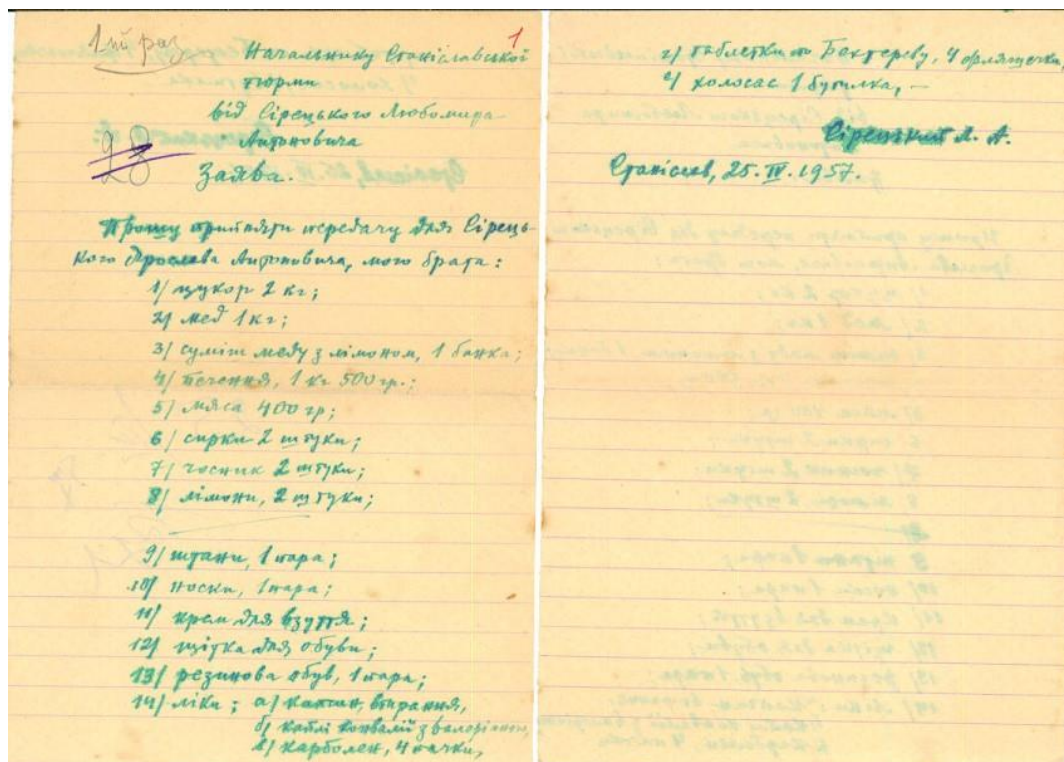 1ий раз
1
Начальнику Станіславської
тюрми
від Сірецького Любомира
Антоновича
28
Заява.
Прошу прийняти передачу для Сірець-
кого Ярослава Антоновича, мого брата:
1/ цукор 2 кг;
2/ мед 1 кг;
3/ суміш меду з лімоном, 1 банка;
4/ печення, 1 кг 500 гр.;
5/ мяса 400 гр;
6/ сирки 2 штуки;
7/ чосник 2 штуки;
8/ лімони, 2 штуки;
9/ штани, 1 пара;
10/ носки, 1 пара;
11/ крем для взуття;
12/ щітка для обуви;
13/ резинова обув, 1 пара;
14/ ліки; а/ втирання,
б/ каплі конвалій з валеріяною,
в/ карболен, 4 пачки,
г/ таблетки по Бехтереву, 4
4/ холосас 1 бутилка, —
Сірецький Л. А.
Станіслав, 25. IV. 1957.